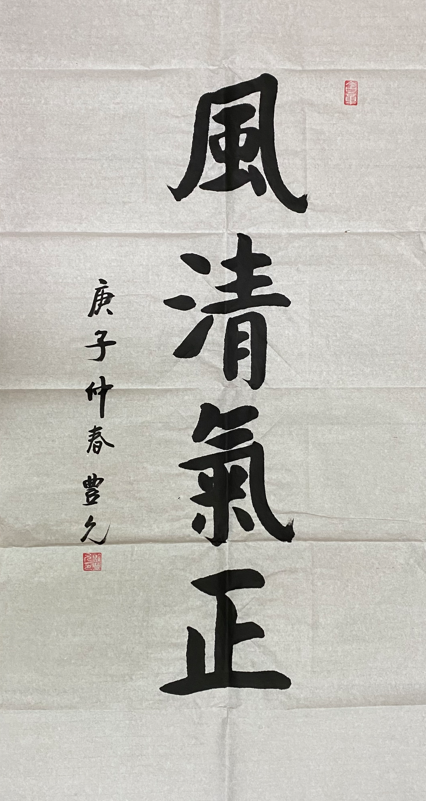 風清氣正
庚子仲春豐允